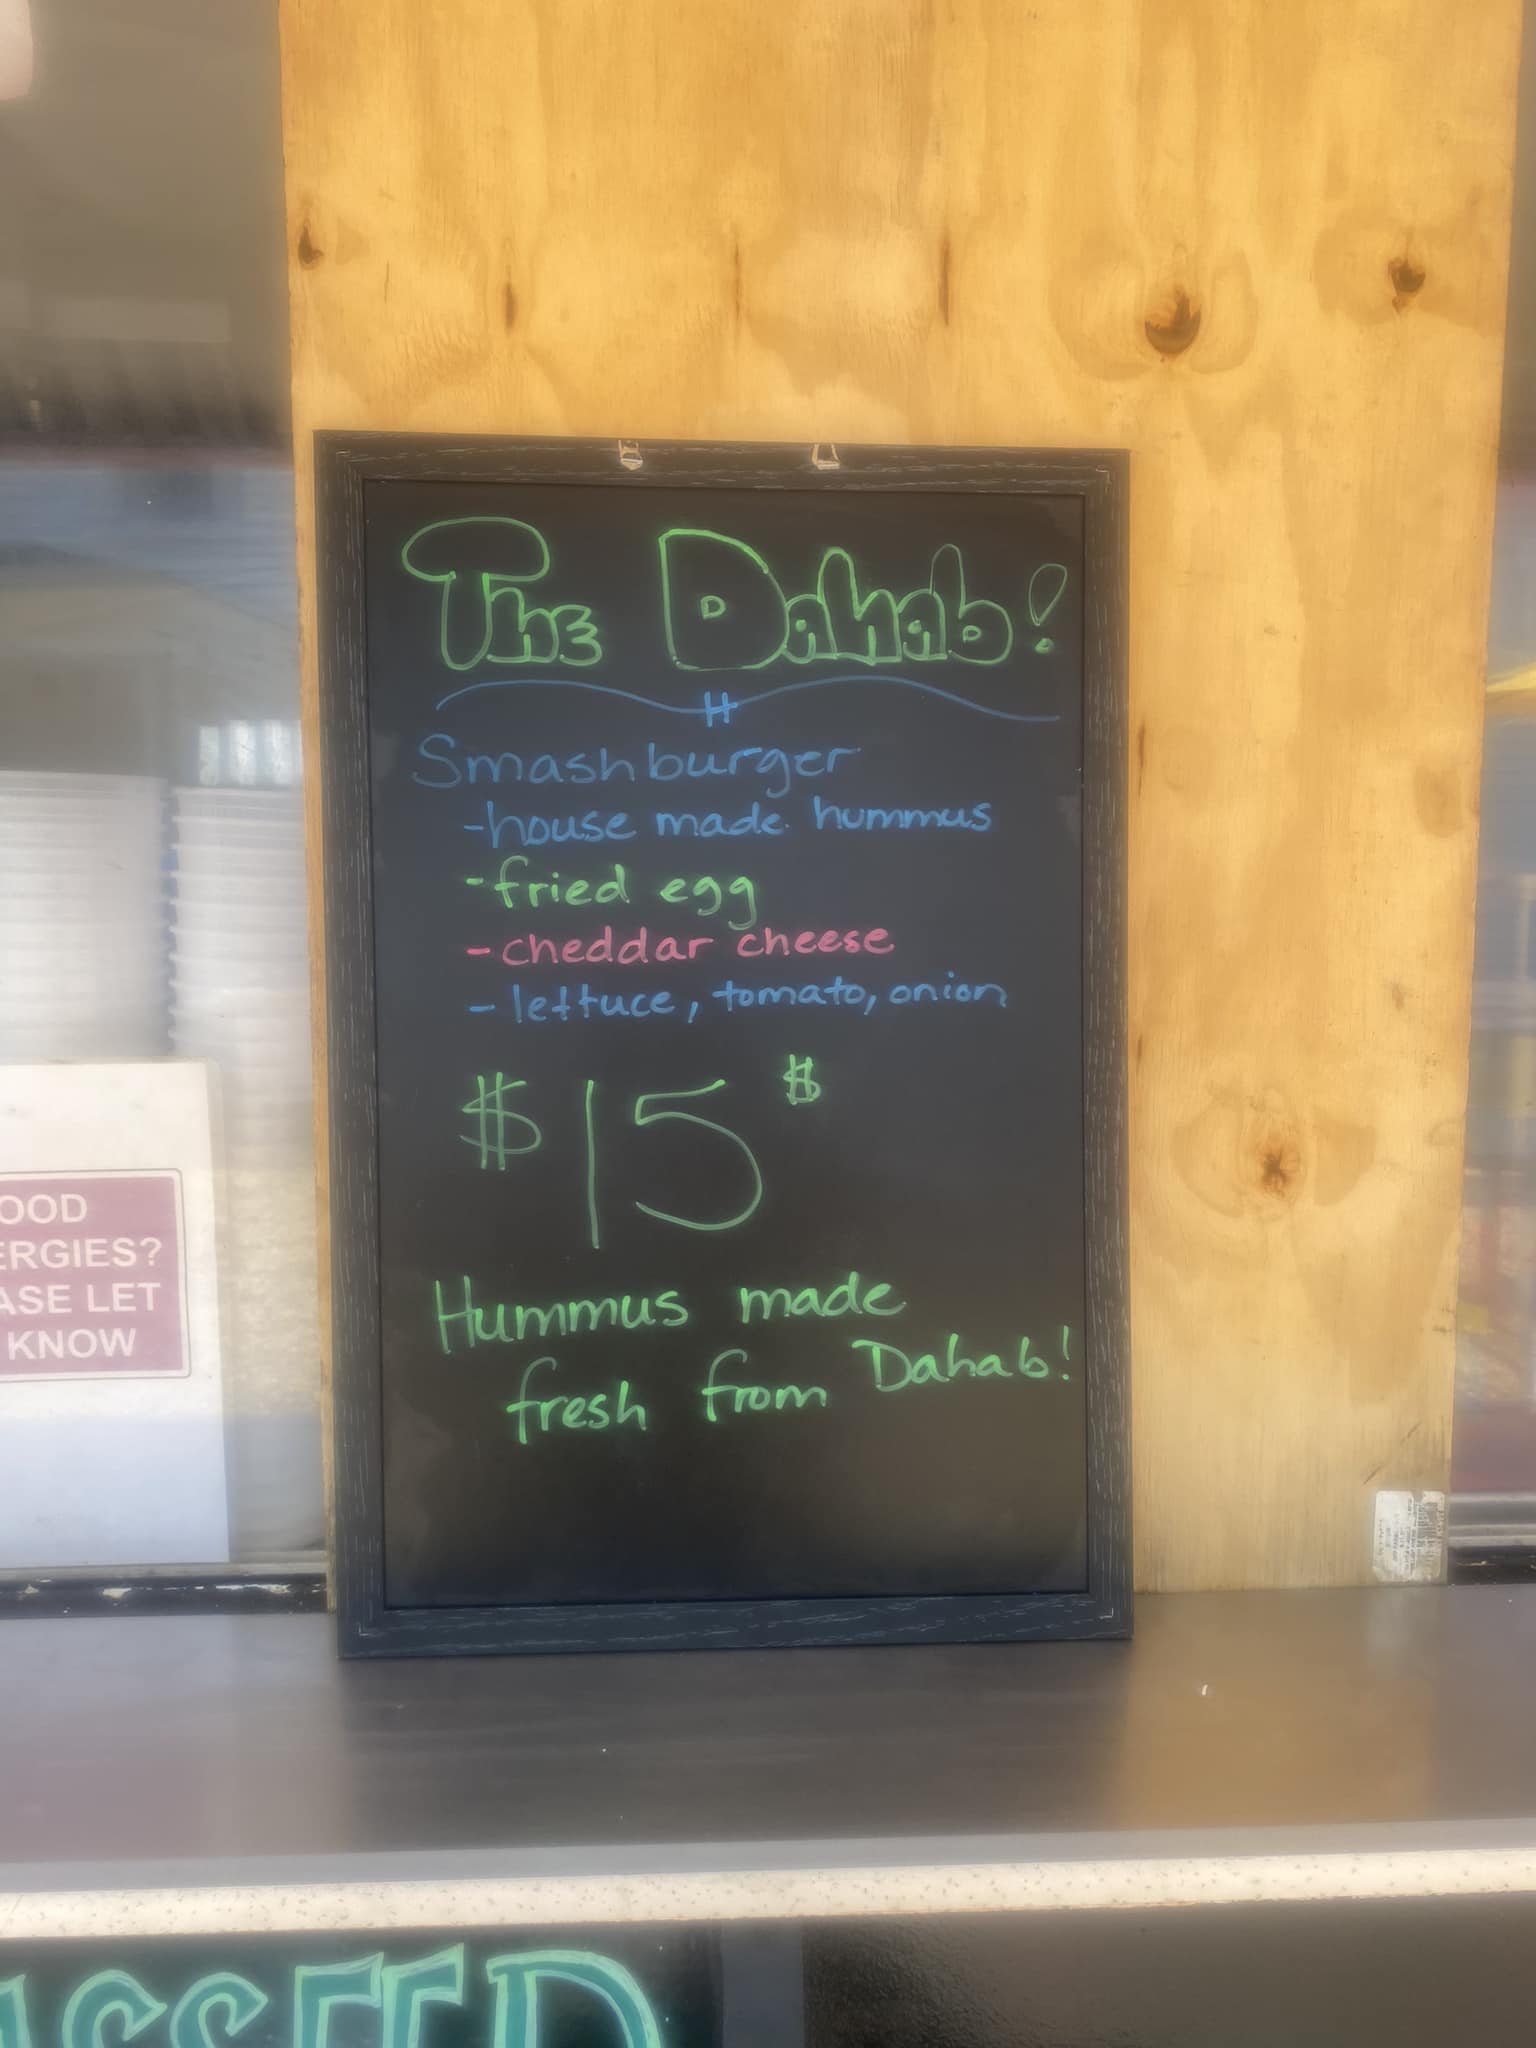 The Dahab!
Smashburger
-house made hummus
-fried egg
-cheddar cheese
-lettuce, tomato, onion
$15 $
Hummus made
fresh from Dahab!
OOD
ERGIES?
ASE LET
KNOW